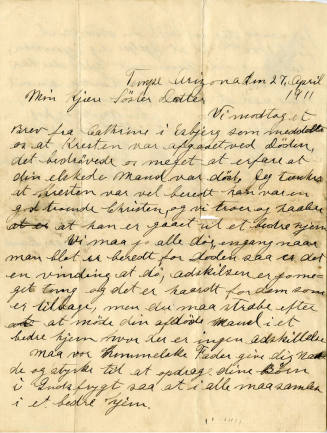 Tempe Arizona den 27, April
1911
Min kjære Söster Datter
Vi modtog et
Brev fra Cathrine i Esbjerg som meddelte
os at Kresten var afgaaet ved Döden,
det bedrövede os meget at erfare at
din elskede Mand var död, Jeg tænker
at Kresten var vel beredt han var en
god troende Christen, og vi troer og haaber
at han er gaaet til et bedre hjem
Vi maa jo alle dö, engang naar
man blot er beredt for Döden saa er det
en vinding at dö, adskilsen er
tung og det er haardt for dem som
er tilbage, men du maa stræbe efter
at möde din afdöde Mand i et
bedre hjem hvor der er ingen adskillelse
maa vor himmelske Fader give dig Naa
de og styrke til at opdrage dine Börn
i Gudsfrygt saa at i alle maa samles
i et bedre hjem.